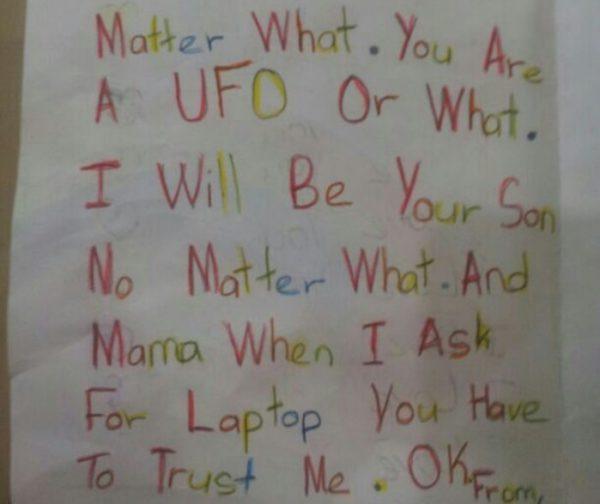 Matter What. You Are
A UFO Or What.
I Will Be Your Son
No Matter What. And
Mama When I Ask
For Laptop You Have
To Trust Me. OK From,